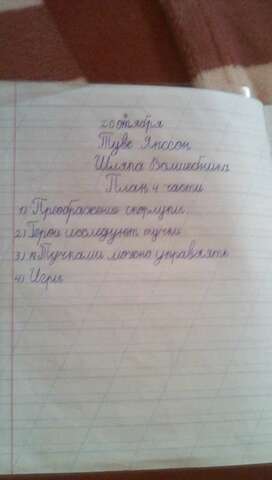 20 октября
Туве Янссон
Шляпа Волшебника
План 4 части
1) Преображение скорлупы.
2) Герои исследуют тучки
3) Тучками можно управлять
4) Игры